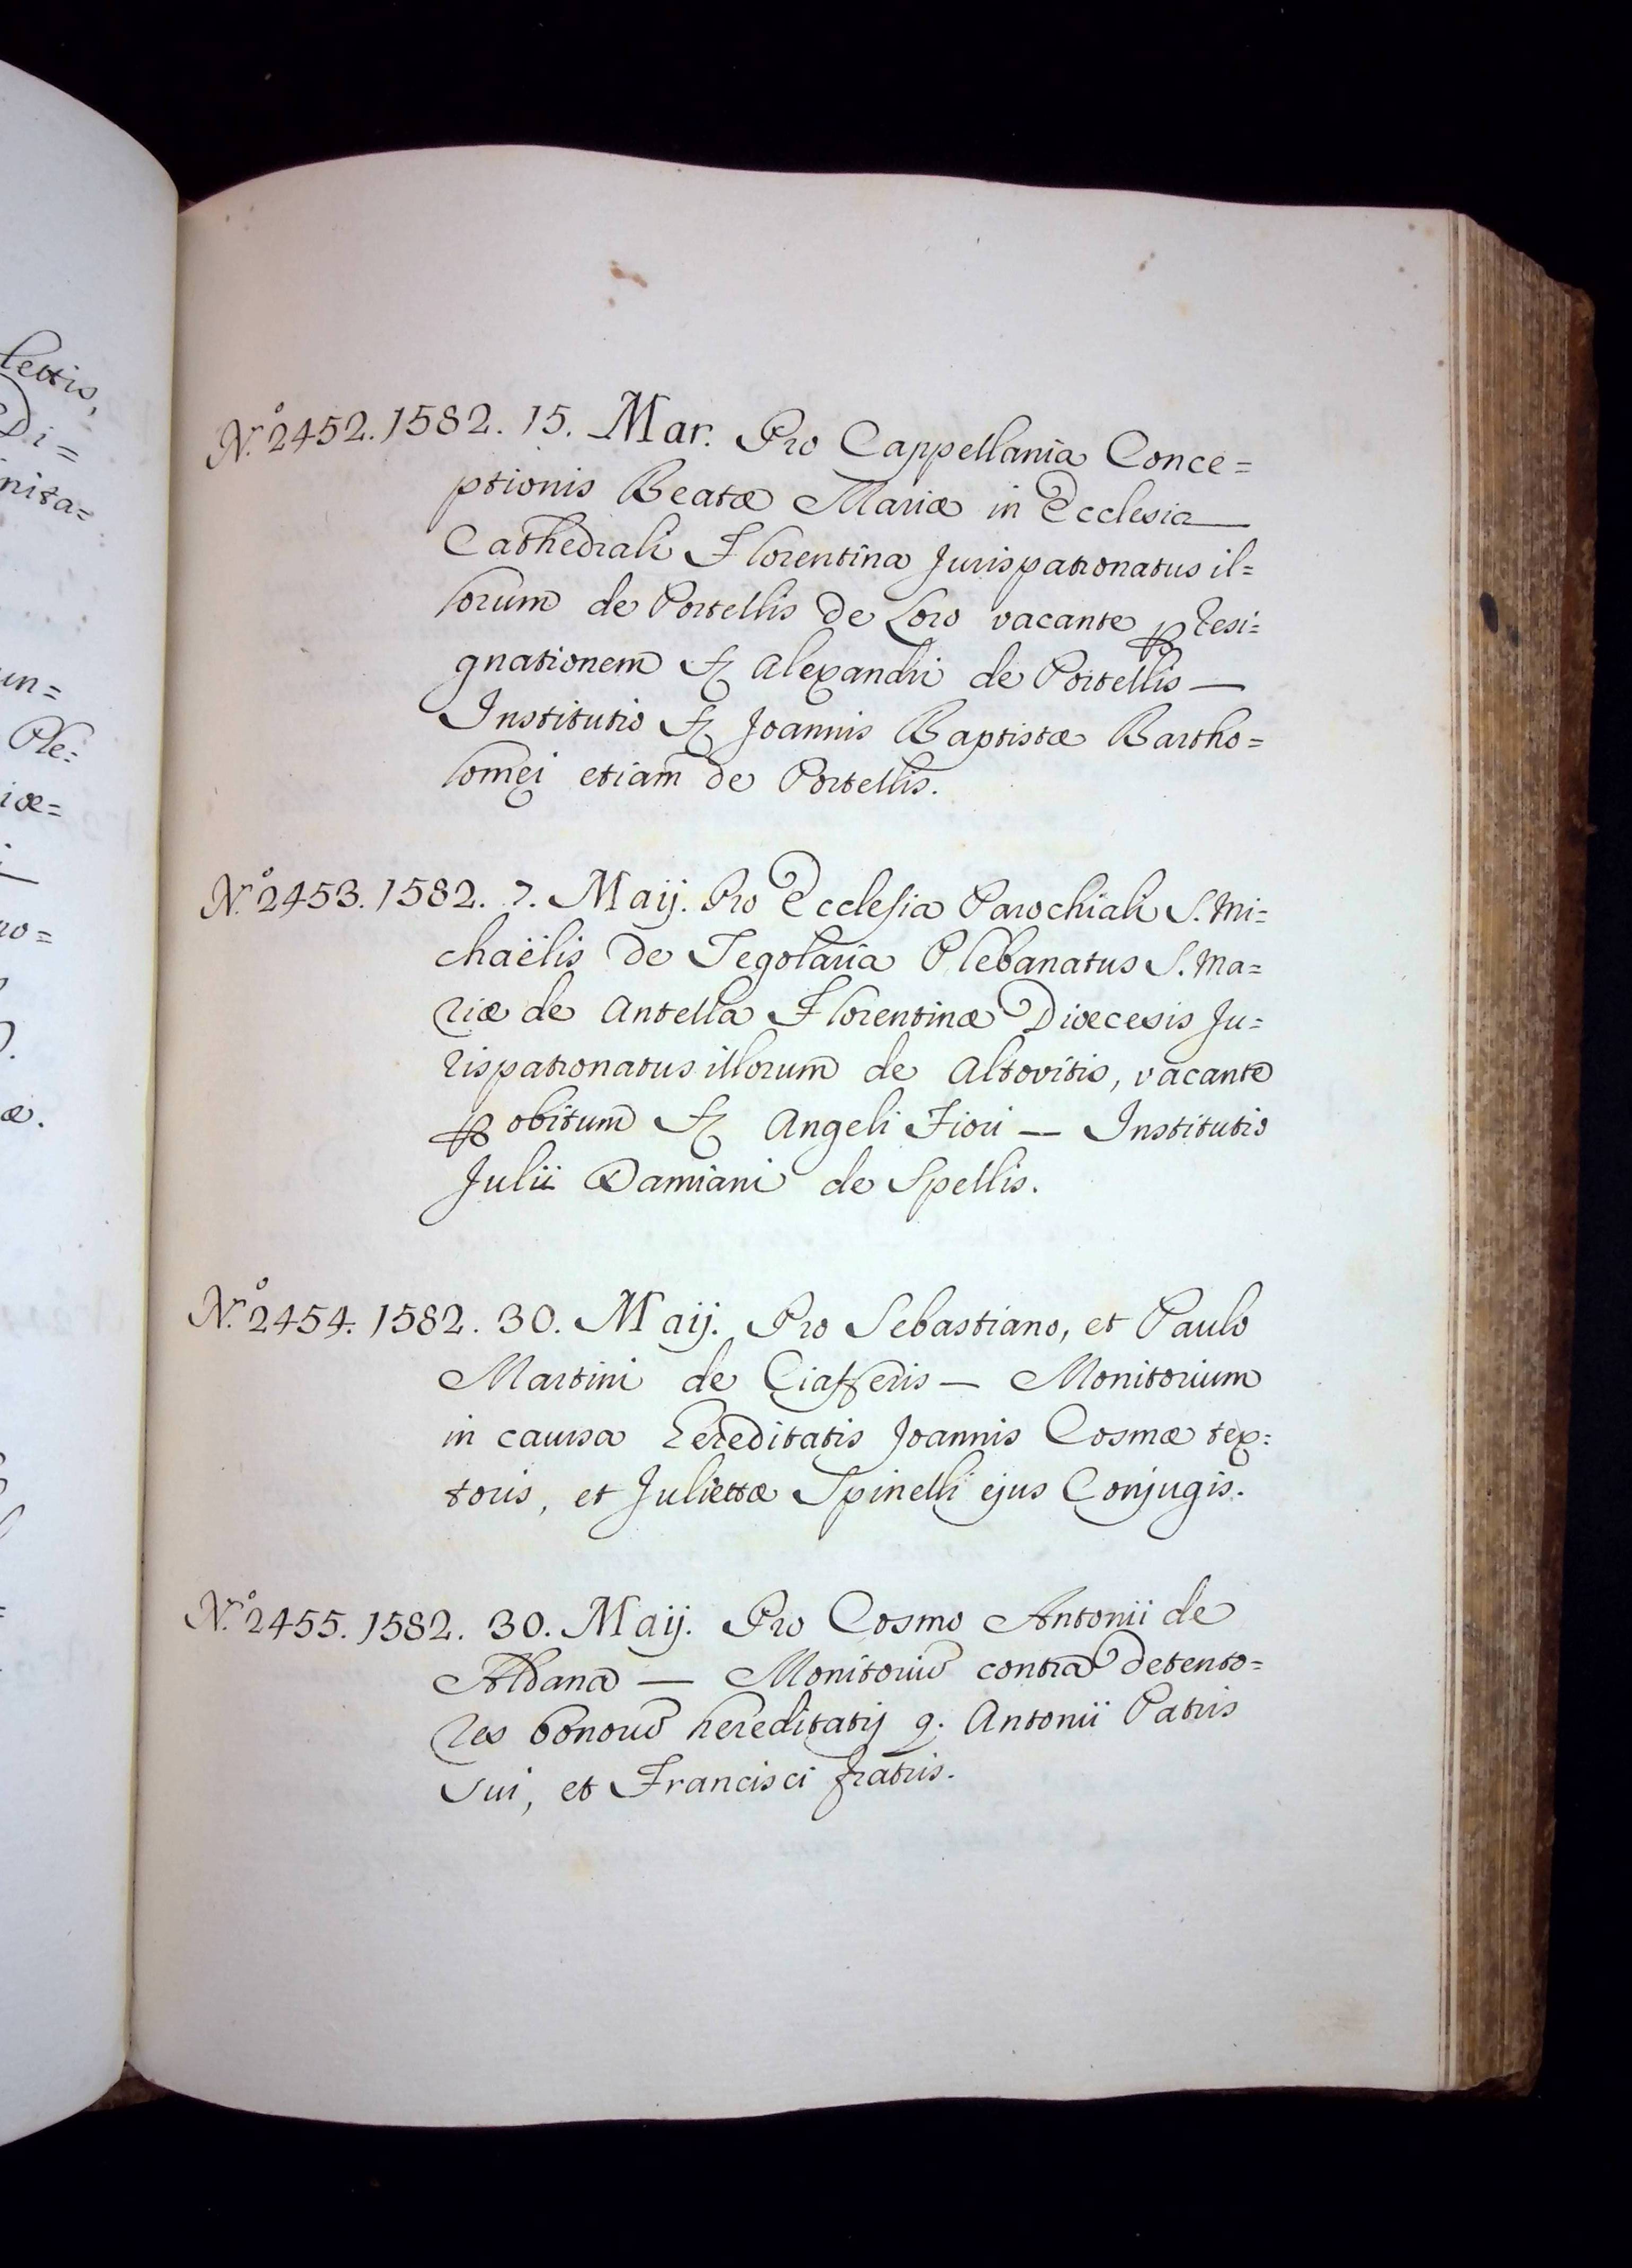 lectis,
Di=
nita=
un=
Ple:
iæ=
no=
æ.
N.º 2452. 1582. 15. Mar. Pro Cappellania Conce=
ptionis Beatæ Mariæ in Ecclesia
Cathedrali Florentina Jurispatronatus il=
lorum de Portellis de Loro vacante p Resi=
gnationem Alexandri de Portellis —
Institutio Joannis Baptistæ Bartho=
lomęi etiam de Portellis.
N.º 2453. 1582. 7. Maij. Pro Ecclesia Parochiali S. Mi=
chaëlis de Tegolaria Plebanatus S. Ma=
riæ de Antella Florentinæ Diœcesis Ju=
rispatronatus illorum de Altovitis, vacante
p obitum Angeli Fiori — Institutio
Julii Damiani de Spellis.
N.º 2454. 1582. 30. Maij. Pro Sebastiano, et Paulo
Martini de Ciafferis — Monitorium
in causa Hereditatis Joannis Cosmæ tex=
toris, et Juliettæ Spinelli ejus Conjugis.
N.º 2455. 1582. 30. Maij. Pro Cosmo Antonii de
Aldana — Monitoriũ contra detento=
res bonorũ hereditatis q. Antonii Patris
sui, et Francisci fratris.